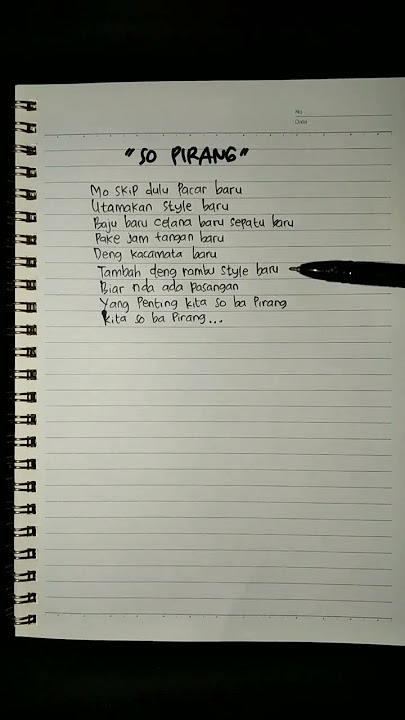 No
Date
"SO PIRANG"
Mo SKIP dulu Pacar baru
Utamakan style baru
Baju baru celana baru sepatu baru
Pake Jam tangan baru
Deng kacamata baru
Tambah deng rambu style baru
Biar nda ada Pasangan
Yang Penting kita so ba Pirang
kita so ba Pirang...